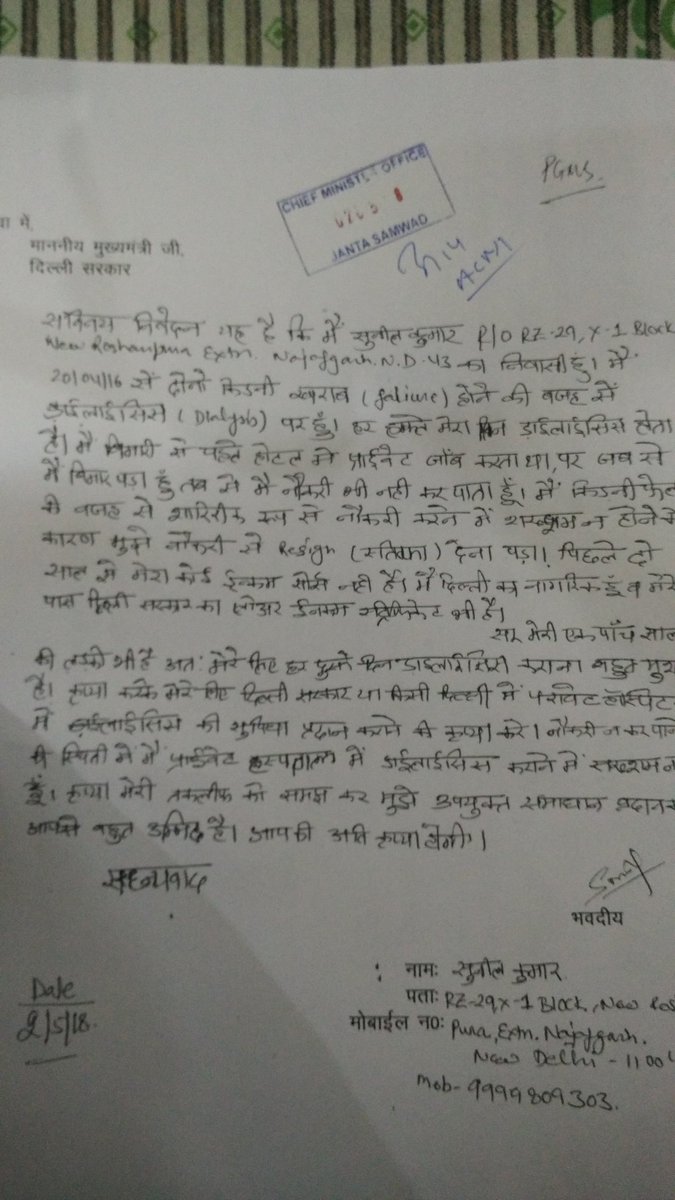 PGMS.
CHIEF MINISTER OFFICE
JANTA SAMWAD
वा में,
माननीय मुख्यमंत्री जी,
दिल्ली सरकार
सविनय निवेदन यह है कि मैं सुनील कुमार R/O RZ-29, X-1 Block
New Roshanpura Extn. Najafgarh. N.D-43 का निवासी हूं। मैं
20/04/16 से दोनो किडनी खराब (faliure) होने की वजह से
डाईलाईसिस (Dialysis) पर हूँ। हर हफ्ते मेरा डाईलाईसिस होता
है। मैं बिमारी से पहले होटल मे प्राईवेट जॉब करता था, पर जब से
मैं बिमार पड़ा हूं तब से मै नौकरी भी नही कर पाता हूँ। मैं किडनी फेल
की वजह से शारिरीक रूप से नौकरी करने में सक्षम न होने के
कारण मुझे नौकरी से Resign (स्तिफा) देना पड़ा। पिछले दो
साल से मेरा कोई ईन्कम सोर्स नही है। मैं दिल्ली का नागरिक हूँ व मेरे
पास दिल्ली सरकार का लोअर ईनकम सर्टिफिकेट भी है।
सर मेरी एक पाँच साल
की लडकी भी है अतः मेरे लिए हर हफ्ते डाईलाईसिस कराना बहुत मुश
है। कृप्या करके मेरे लिए दिल्ली सरकार या किसी दिल्ली में हॉस्पिट
में डाईलाईसिस की सुविधा प्रदान कराने की कृप्या करे। नौकरी न कर पाने
की स्थिती में मैं प्राईवेट हस्पताल में डाईलाईसिस कराने में सक्षम न
हूँ। कृप्या मेरी तकलीफ को समझ कर मुझे उपयुक्त समाधान प्रदान क
आपसे बहुत उम्मिद है। आपकी अति कृप्या होगी।
सधन्यवाद
भवदीय
Date
2/5/18.
नामः सुनील कुमार
पताः RZ-29, X-1 Block, New Ros
मोबाईल न०ः Pura, Extn. Najafgarh.
New Delhi - 11004
Mob- 9999809303.